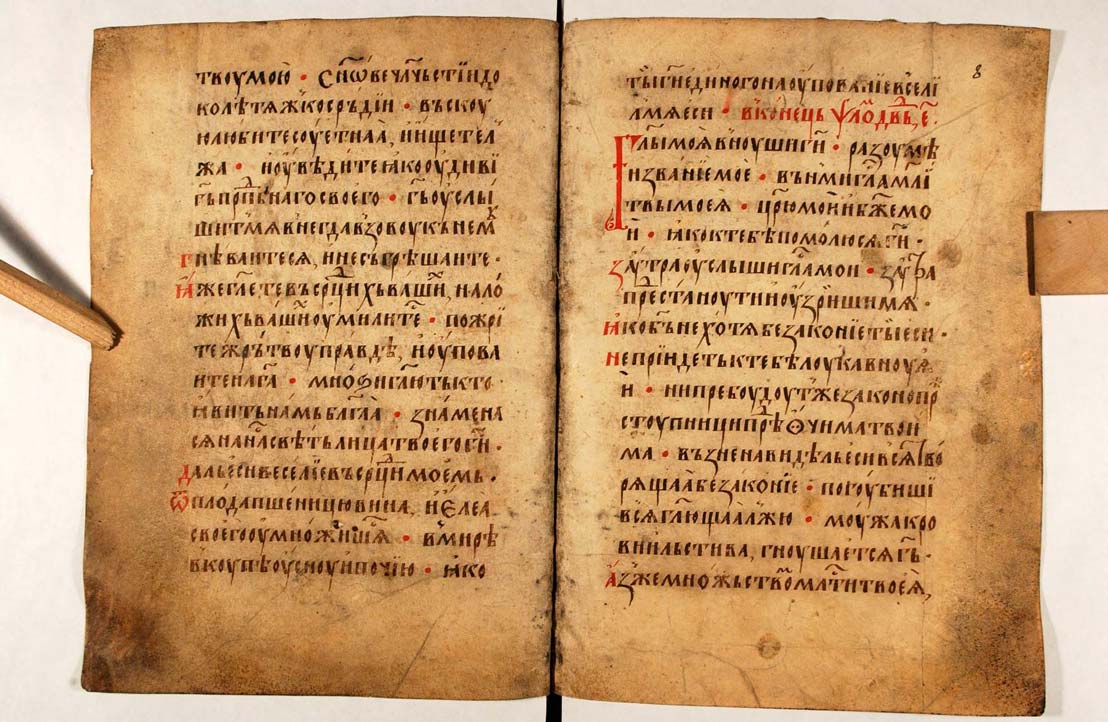 твоумою • сн҃ѡвечлчьстїидо
колѣтѧжкосрь́дїи • въскоу
юлюбитесоуетнаа, ищетел
жа • ноувѣдитеꙗкооудиви
гь҃прп҃бнагосвоего • гь҃оуслы
шитмѧвнегдавъзовоукънемꙋ
гнѣваитесѧ, инесъгрѣшаите •
ꙗжегл҃етевъср҃цихъваши, нало
жихъвашиоумилите • пожрі
тежрътвоуправдѣ, ноупова
итенага҃ • мноѕиглю҃тькто
ꙗвитьнамьбл҃гаа • знамена
сѧнанасвѣтьлицатвоегоги҃ •
дальесивеселїевъср҃цимоемь •
ѿплодапшеницювина, иелеа
своегооумножишѧ • вмирѣ
вкоупѣоусноуипочїю • ꙗко
8
тыги҃единогонаоупованїевселї
лмѧеси • вконець ѱало҃м дв҃дь, е҃ •
Гл҃ымоѧвноушиги҃ • разоумѣ
изванїемое • вънмигла҃мл҃ї
твымоеѧ • цр҃юмоиибж҃емо
и • ꙗкоктебѣпомолюсѧги҃ •
заутраоуслышигла҃мои • заутра
прѣстаноутииоузришимѧ •
ꙗкобъ҃нехотѧбезаконїетыеси •
непрїидетьктебѣлоукавноуѧ
и • нипребоудоутжезаконопрѣ
стоупниципрѣⷣѻчиматвои
ма • възненавидѣльесивсѧтво
рѧщаѧбезаконїе • погоубиші
всѧглю҃щаѧлжю • моужакро
виильстива, гноушаетсѧгь҃ •
азжемножьствомм҃лтитвоеѧ,